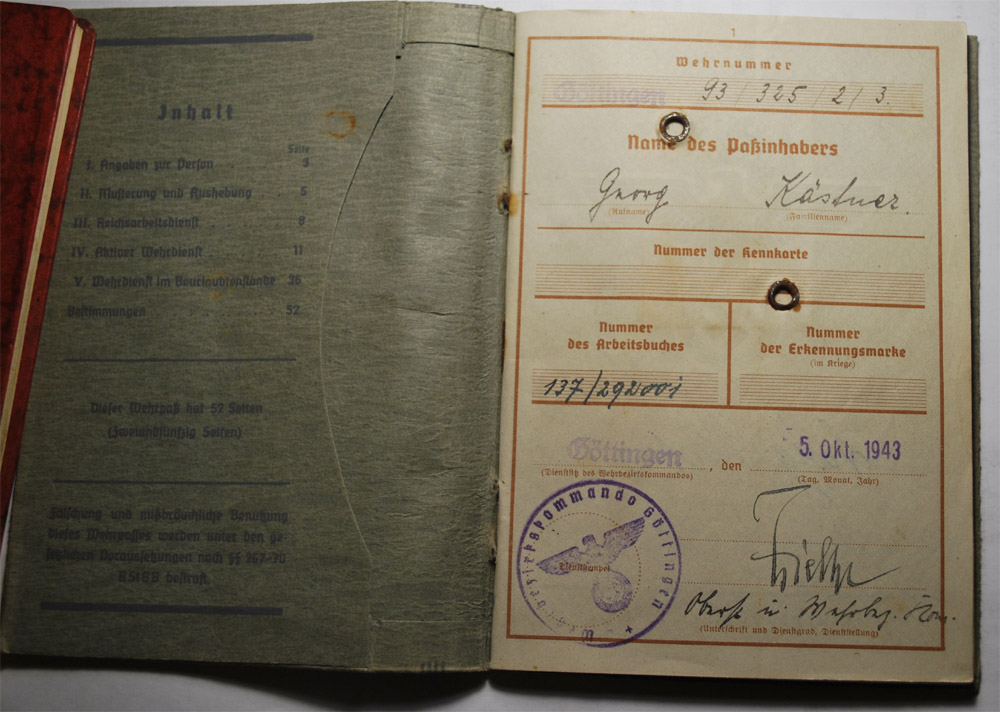 Inhalt
Seite
I. Angaben zur Person . . 3
II. Musterung und Aushebung . 5
III. Reichsarbeitsdienst . . 8
IV. Aktiver Wehrdienst . . 11
V. Wehrdienst im Beurlaubtenstande 36
Bestimmungen . . . . 52
Dieser Wehrpaß hat 52 Seiten
(Zweiundfünfzig Seiten)
Fälschung und mißbräuchliche Benutzung
dieses Wehrpasses werden unter den ge-
setzlichen Voraussetzungen nach §§ 267-70
RStGB bestraft.
1
Wehrnummer
Göttingen 93 / 325 / 2 / 3.
Name des Paßinhabers
Georg Kästner.
(Rufname) (Familienname)
Nummer der Kennkarte
Nummer
des Arbeitsbuches
137/292001
Nummer
der Erkennungsmarke
(im Kriege)
Göttingen, den 5. Okt. 1943
(Dienstsitz des Wehrbezirkskommandos) (Tag, Monat, Jahr)
Wehrbezirkskommando Göttingen
Dienststempel
Oberst u. Wehrbez. Kom.
(Unterschrift und Dienstgrad, Dienststellung)